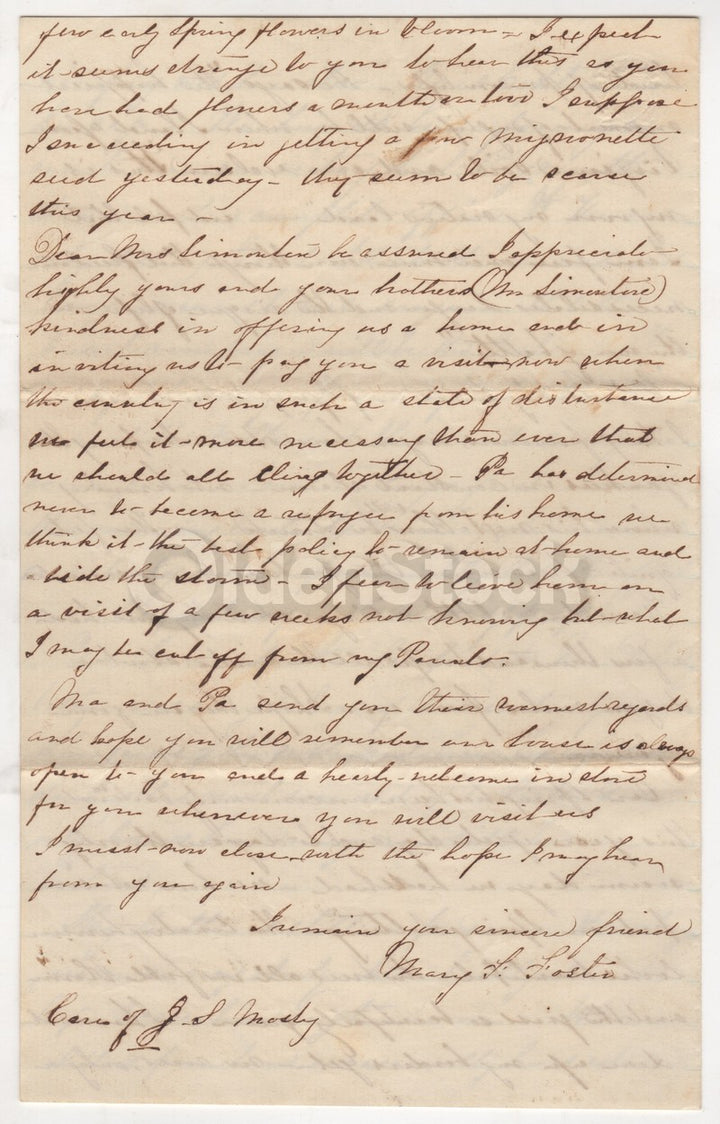 few early Spring flowers in bloom - I expect
it seems strange to you to hear this as you
have had flowers a month or two I suppose
I succeeding in getting a few mignonette
seed yesterday - they seem to be scarse
this year -
Dear Mrs Simonton be assured I appreciate
highly yours and your brothers (Mr Simonton)
kindness in offering us a home and in
inviting us to pay you a visit now when
the country is in such a state of disturbance
we feel it more necessary than ever that
we should all cling together - Pa has determined
never to become a refugee from his home we
think it the best policy to remain at home and
bide the storm - I fear to leave him on
a visit of a few weeks not knowing but what
I may be cut off from my Parents.
Ma and Pa send you their warmest regards
and hope you will remember our house is always
open to you and a hearty welcome in store
for you whenever you will visit us
I must now close with the hope I may hear
from you again
I remain your sincere friend
Mary F. Foster
Care of J. S Mosby
OldenStock